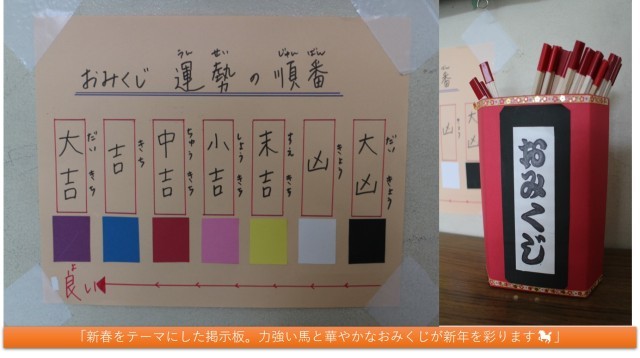 うん せい じゅん ばん
おみくじ 運勢の順番
大吉 だいきち
吉 きち
中吉 ちゅうきち
小吉 しょうきち
末吉 すえきち
凶 きょう
大凶 だいきょう
よ
良い
番
凶
おみくじ
「新春をテーマにした掲示板。力強い馬と華やかなおみくじが新年を彩ります🐎」